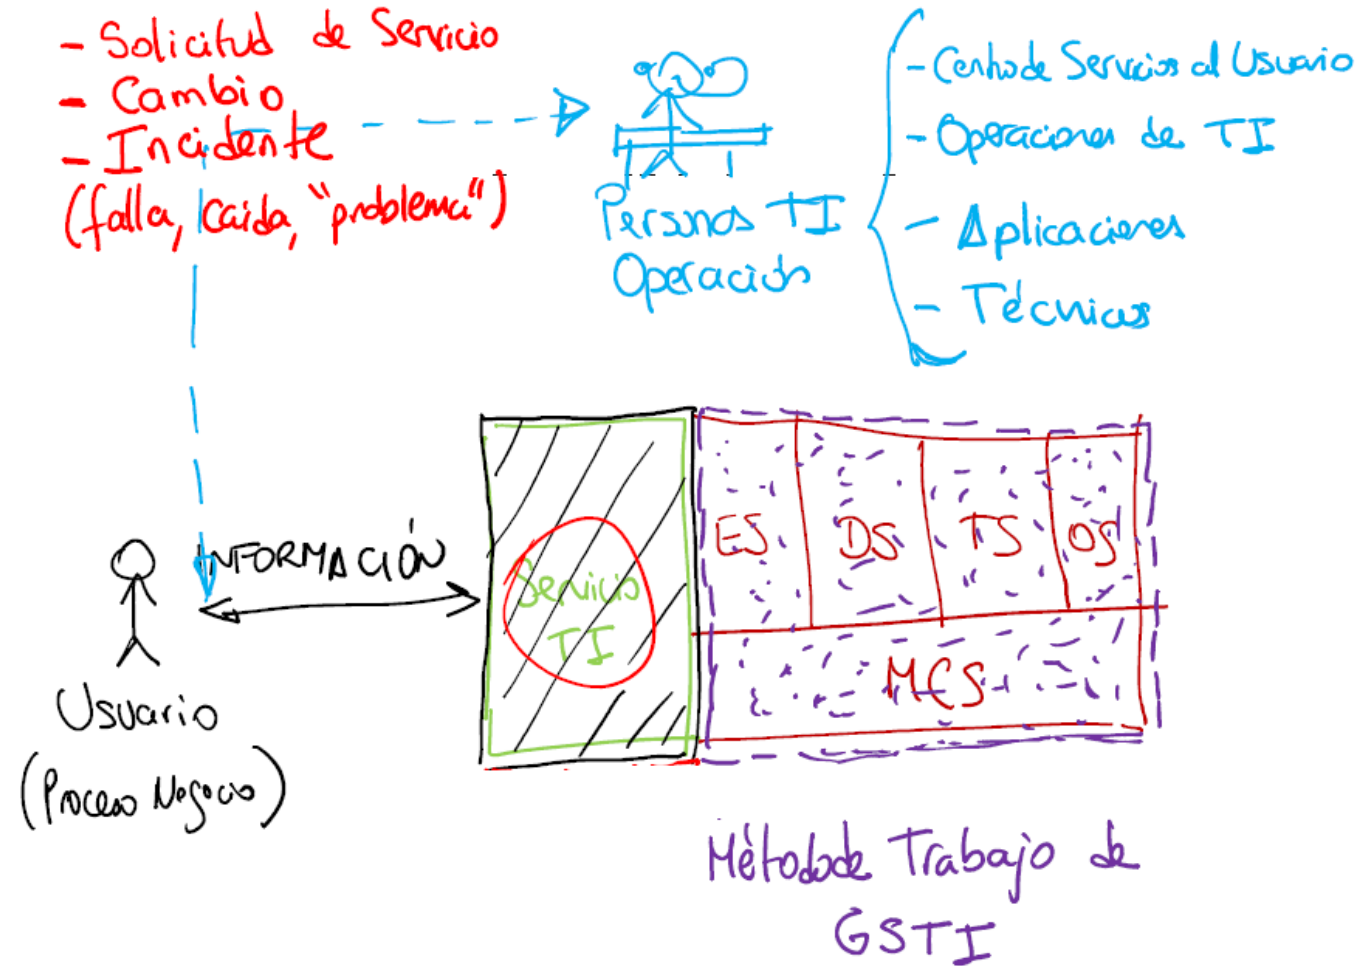 - Solicitud de Servicio
- Cambio
- Incidente
(falla, caida, "problema")
Personas TI
Operación
- Centro de Servicios al Usuario
- Operaciones de TI
- Aplicaciones
- Técnicos
INFORMACIÓN
Usuario
(Proceso Negocio)
Servicio
TI
ES DS TS OS
MCS
Método de Trabajo de
GSTI